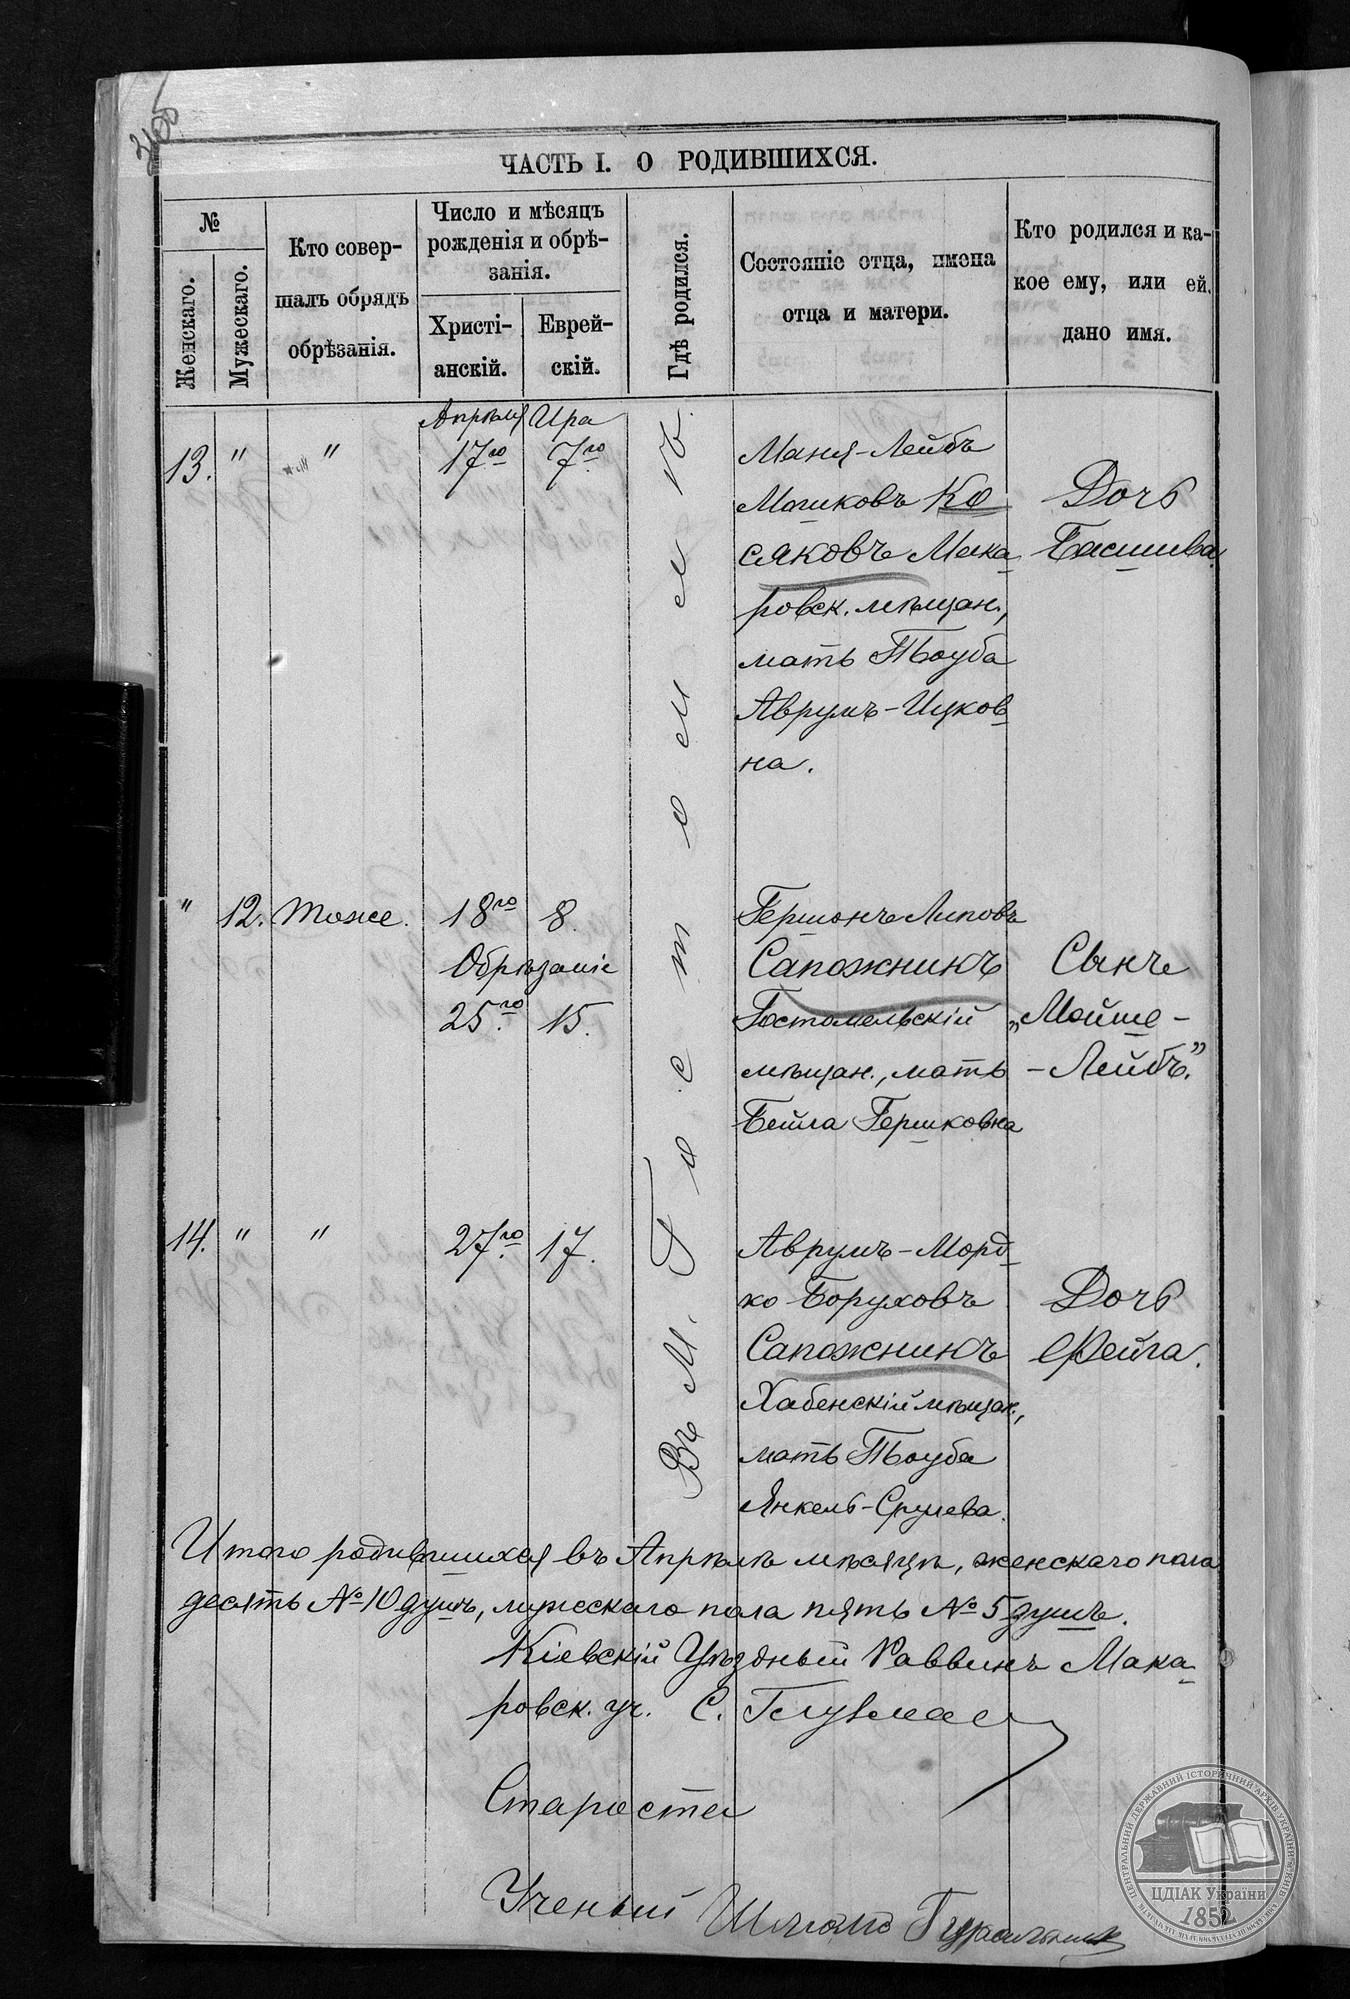 ЧАСТЬ I. О РОДИВШИХСЯ.
№
Женскаго.
Мужескаго.
Кто совер-
шалъ обрядъ
обрѣзанія.
Число и мѣсяцъ
рожденія и обрѣ-
занія.
Христі-
анскій.
Еврей-
скій.
Гдѣ родился.
Состояніе отца, имена
отца и матери.
Кто родился и ка-
кое ему, или ей,
дано имя.
Апрѣля Ира
13. " " 17го 7го
Въ М. Гостомелѣ.
Маня-Лейбъ
Мошковъ Ко
сяковъ Мака
ровск. мѣщан.,
мать Тьоуба
Аврумъ-Ицков
на.
Дочь
Басшива.
" 12. тоже. 18го 8.
Обрѣзаніе
25го 15.
Гершонъ Липовъ
Сапожникъ
Гостомельскій
мѣщан., мать
Бейла Гершковна
Сынъ
„Мойше-
-Лейбъ".
14. " " 27го 17.
Аврумъ-Морд
ко Боруховъ
Сапожникъ
Хабенскій мѣщан.,
мать Тьоуба
Янкель-Срулева.
Дочь
Фейга.
Итого родившихся въ Апрѣлѣ мѣсяцѣ, женскаго пола
десять № 10 душъ, мужескаго пола пять № 5 душъ.
Кіевскій Уѣздный Раввинъ Мака
ровск. уч. С.
Староста
Ученый
ЦЕНТРАЛЬНИЙ ДЕРЖАВНИЙ ІСТОРИЧНИЙ АРХІВ УКРАЇНИ, М.КИЇВ
ЦДІАК України
1852